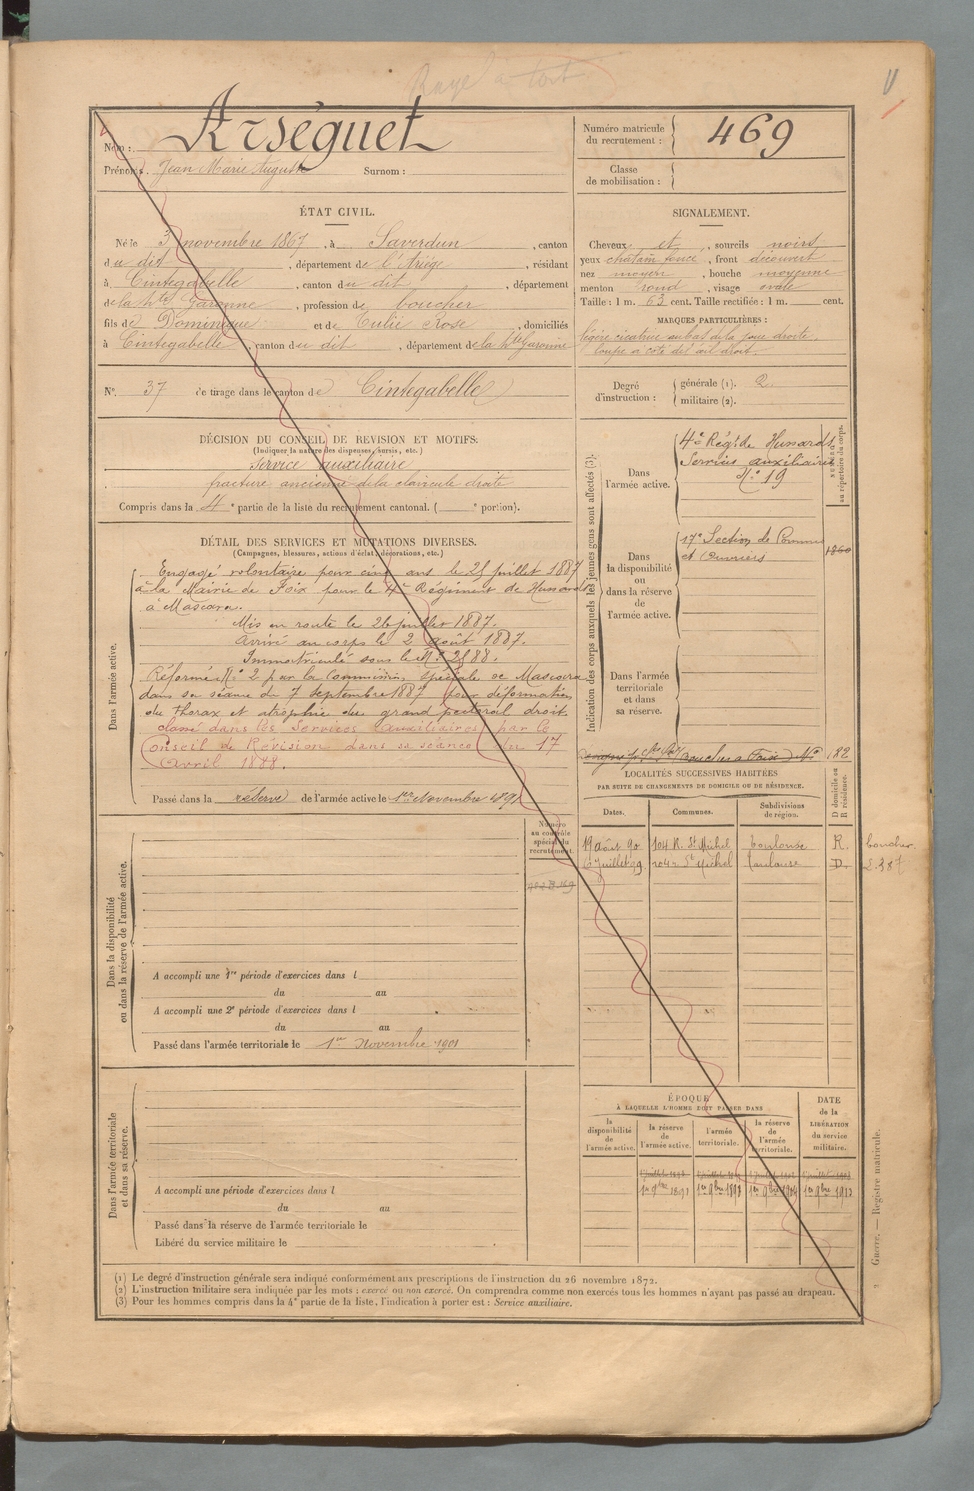 Rayé à tort
V
Nom : Arséguet
Prénoms : Jean Marie Auguste Surnom :
Numéro matricule du recrutement : 469
Classe de mobilisation :
ÉTAT CIVIL.
Né le 3 novembre 1867, à Saverdun, canton
du dit, département de l'Ariège, résidant
à Cintegabelle, canton du dit, département
de la Hte Garonne, profession de boucher
fils de Dominique et de Eulie Rose, domiciliés
à Cintegabelle, canton du dit, département de la Hte Garonne
SIGNALEMENT.
Cheveux et, sourcils noirs
yeux chatain foncé, front découvert
nez moyen, bouche moyenne
menton rond, visage ovale
Taille : 1 m. 63 cent. Taille rectifiée : 1 m. cent.
MARQUES PARTICULIÈRES :
légère cicatrice au bas de la joue droite.
loupe a coté de l'œil droit.
N° 37 de tirage dans le canton de Cintegabelle
Degré d'instruction : générale (1). 2
militaire (2).
DÉCISION DU CONSEIL DE REVISION ET MOTIFS:
(Indiquer la nature des dispenses, sursis, etc.)
Service auxiliaire
fracture ancienne de la clavicule droite
Compris dans la 4e partie de la liste du recrutement cantonal. ( e portion).
DÉTAIL DES SERVICES ET MUTATIONS DIVERSES.
(Campagnes, blessures, actions d'éclat, décorations, etc.)
Dans l'armée active.
Engagé volontaire pour cinq ans le 25 juillet 1887
à la Mairie de Foix pour le 4e Régiment de Hussards
à Mascara.
Mis en route le 26 juillet 1887.
Arrivé au corps le 2 août 1887.
Immatriculé sous le N° 2588.
Réformé N° 2 par la Commission Spéciale de Mascara
dans sa séance du 7 septembre 1887 pour déformation
du thorax et atrophie du grand pectoral droit.
classé dans les Services Auxiliaires par le
Conseil de Révision dans sa séance du 17
Avril 1888.
Passé dans la réserve de l'armée active le 1er Novembre 1891
Indication des corps auxquels les jeunes gens sont affectés (3).
Dans l'armée active.
4e Régt de Hussards
Services auxiliaires
N° 19
au répertoire du corps.
Dans la disponibilité ou dans la réserve de l'armée active.
17e Section de Commis
et Ouvriers
1860
Dans l'armée territoriale et dans sa réserve.
182
LOCALITÉS SUCCESSIVES HABITÉES
PAR SUITE DE CHANGEMENTS DE DOMICILE OU DE RÉSIDENCE.
D domicile ou R résidence.
Dates. Communes. Subdivisions de région.
19 août 90 104 R. St Michel Toulouse R.
6 Juillet 99 204 r St Michel Toulouse D.
boucher
Numéro au contrôle spécial du recrutement.
Dans la disponibilité ou dans la réserve de l'armée active.
A accompli une 1re période d'exercices dans l
du au
A accompli une 2e période d'exercices dans l
du au
Passé dans l'armée territoriale le 1er Novembre 1901
Dans l'armée territoriale et dans sa réserve.
A accompli une période d'exercices dans l
du au
Passé dans la réserve de l'armée territoriale le
Libéré du service militaire le
ÉPOQUE
À LAQUELLE L'HOMME DOIT PASSER DANS
la disponibilité de l'armée active. la réserve de l'armée active. l'armée territoriale. la réserve de l'armée territoriale. DATE de la LIBÉRATION du service militaire.
(1) Le degré d'instruction générale sera indiqué conformément aux prescriptions de l'instruction du 26 novembre 1872.
(2) L'instruction militaire sera indiquée par les mots : exercé ou non exercé. On comprendra comme non exercés tous les hommes n'ayant pas passé au drapeau.
(3) Pour les hommes compris dans la 4e partie de la liste, l'indication à porter est : Service auxiliaire.
Guerre. — Registre matricule.